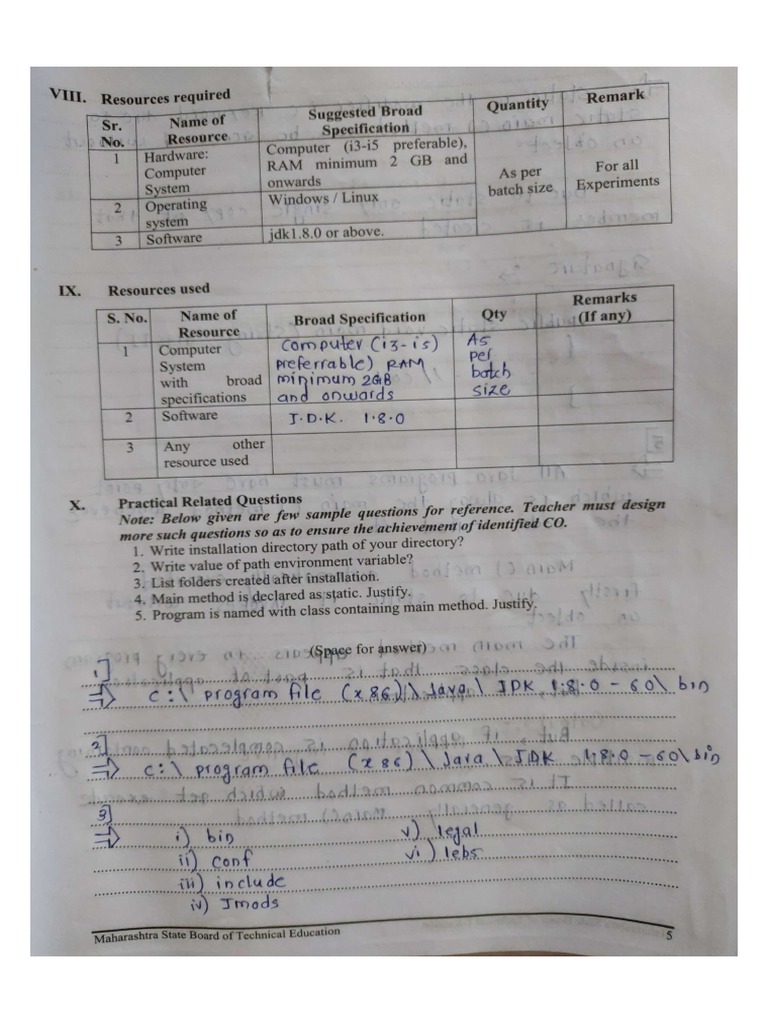 VIII. Resources required
Sr. No. Name of Resource Suggested Broad Specification Quantity Remark
1 Hardware: Computer System Computer (i3-i5 preferable), RAM minimum 2 GB and onwards As per batch size For all Experiments
2 Operating system Windows / Linux
3 Software jdk1.8.0 or above.
IX. Resources used
S. No. Name of Resource Broad Specification Qty Remarks (If any)
1 Computer System with broad specifications computer (i3-i5) preferrable) RAM minimum 2GB and onwards As per batch size
2 Software J.D.K. 1.8.0
3 Any other resource used
X. Practical Related Questions
Note: Below given are few sample questions for reference. Teacher must design
more such questions so as to ensure the achievement of identified CO.
1. Write installation directory path of your directory?
2. Write value of path environment variable?
3. List folders created after installation.
4. Main method is declared as static. Justify.
5. Program is named with class containing main method. Justify.
(Space for answer)
1]
⇒ c:\ program file (x86)\ Java \ JDK 1.8.0 - 60\ bin
2]
⇒ c:\ program file (x86) \ Java \ JDK 1.8.0 - 60\ bin
3]
⇒ i) bin v) legal
ii) conf vi) lebs
iii) include
iv) Jmods
Maharashtra State Board of Technical Education 5